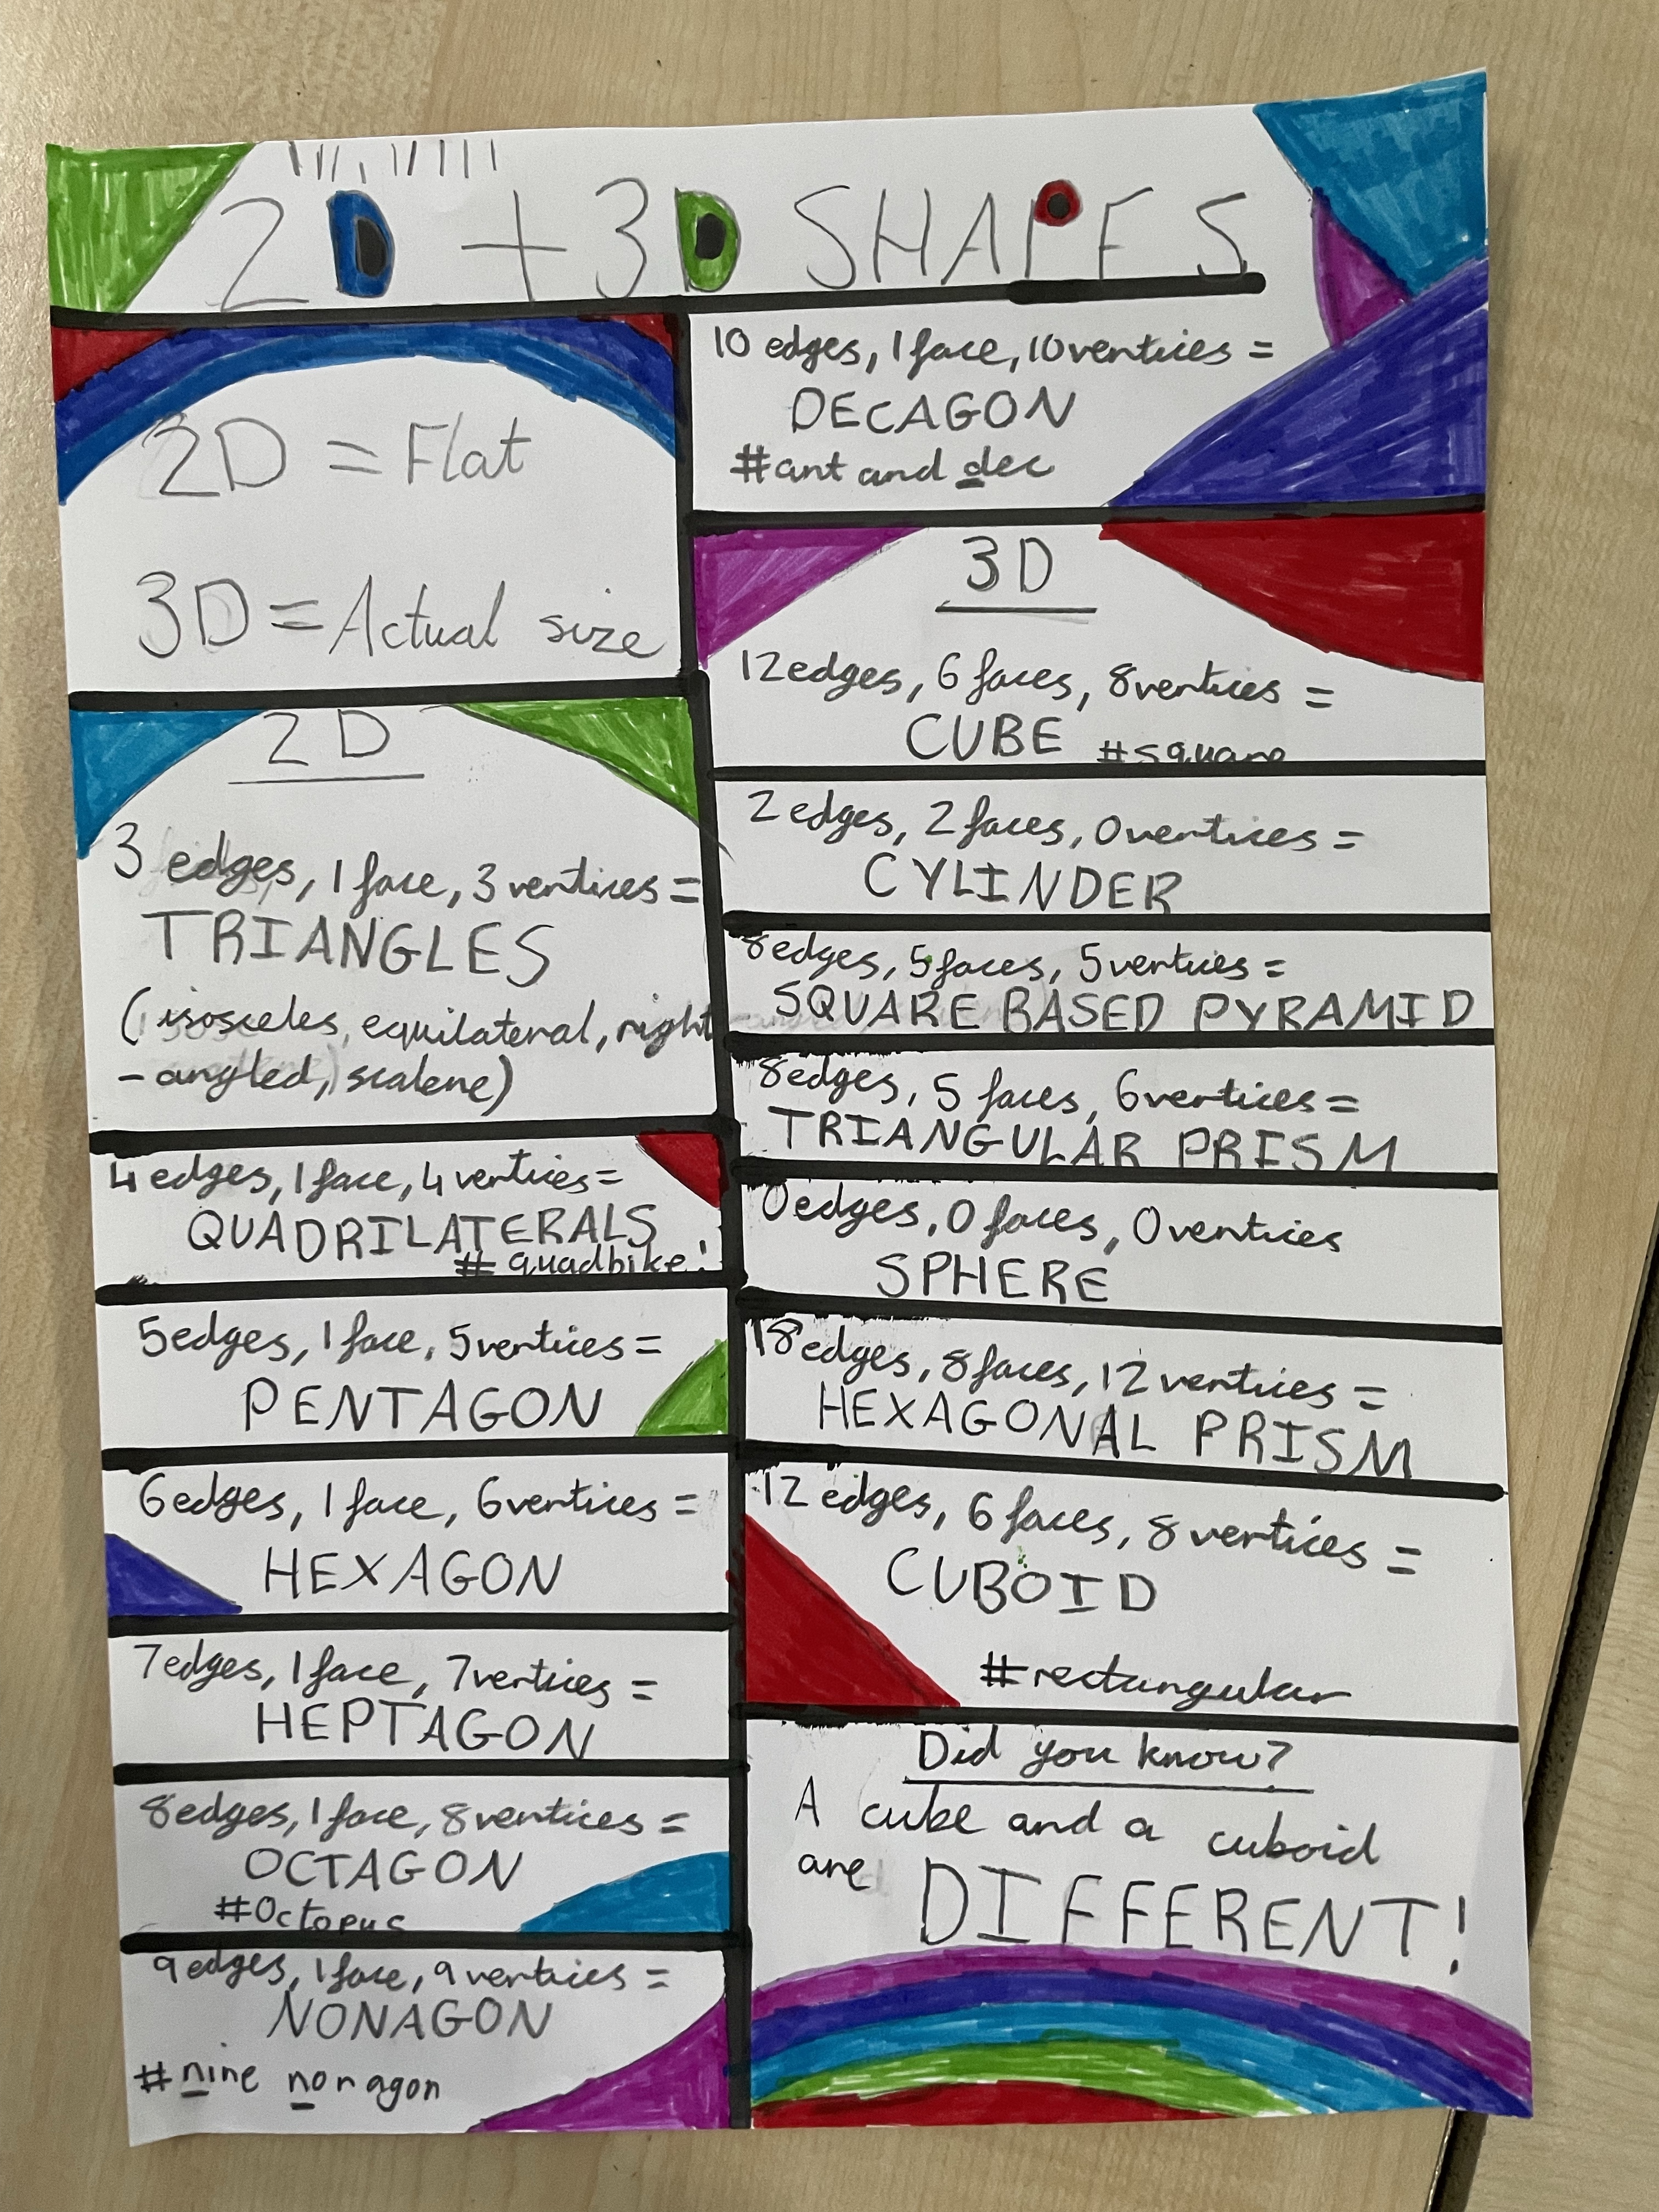 2D + 3D SHAPES
2D = Flat
3D = Actual size
2D
3 edges, 1 face, 3 vertices =
TRIANGLES
(isosceles, equilateral, right
- angled, scalene)
4 edges, 1 face, 4 vertices =
QUADRILATERALS
# quadbike!
5 edges, 1 face, 5 vertices =
PENTAGON
6 edges, 1 face, 6 vertices =
HEXAGON
7 edges, 1 face, 7 vertices =
HEPTAGON
8 edges, 1 face, 8 vertices =
OCTAGON
#Octopus
9 edges, 1 face, 9 vertices =
NONAGON
# nine nonagon
10 edges, 1 face, 10 vertices =
DECAGON
#ant and dec
3D
12 edges, 6 faces, 8 vertices =
CUBE #square
2 edges, 2 faces, 0 vertices =
CYLINDER
8 edges, 5 faces, 5 vertices =
SQUARE BASED PYRAMID
8 edges, 5 faces, 6 vertices =
TRIANGULAR PRISM
0 edges, 0 faces, 0 vertices
SPHERE
18 edges, 8 faces, 12 vertices =
HEXAGONAL PRISM
12 edges, 6 faces, 8 vertices =
CUBOID
#rectangular
Did you know?
A cube and a cuboid
are DIFFERENT!